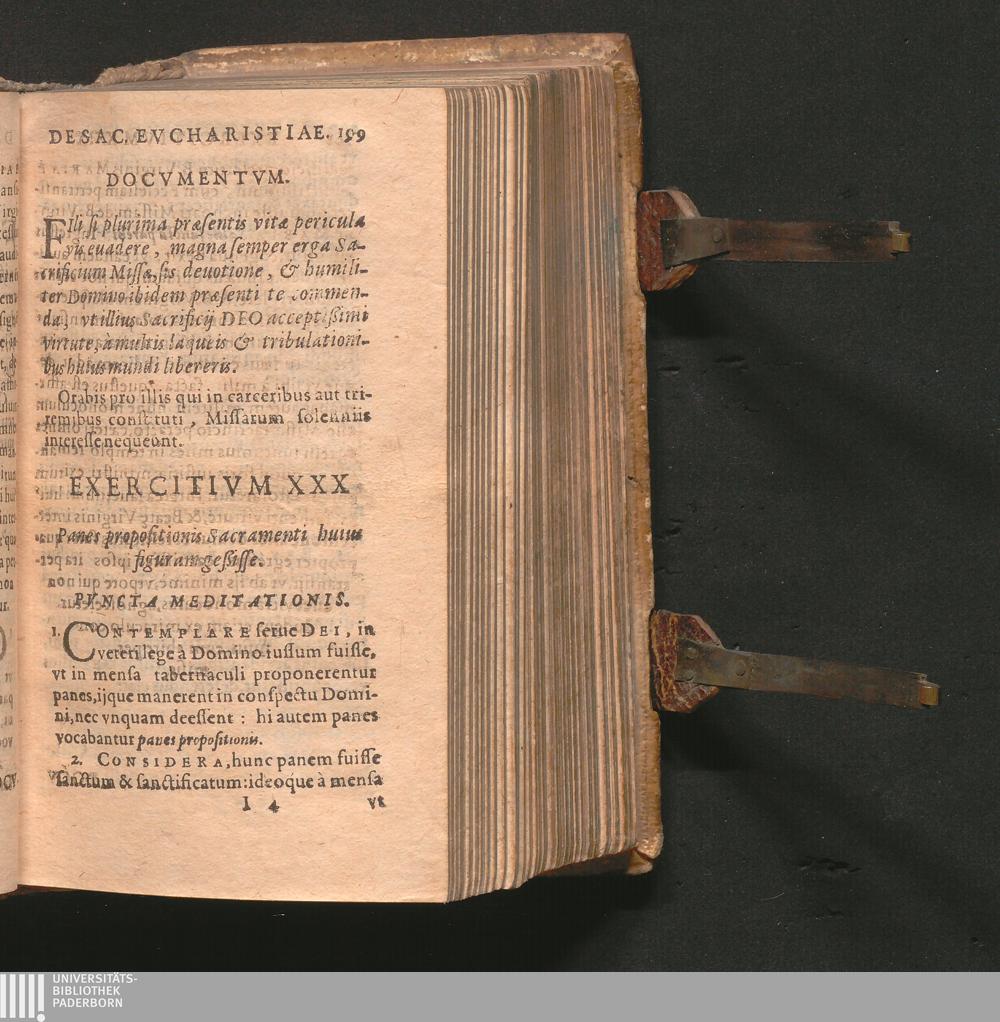 DE SAC. EVCHARISTIAE. 199
DOCVMENTVM.
FIli si plurima præsentis vitæ pericula
vis euadere, magna semper erga Sa-
crificium Missæ, sis deuotione, & humili-
ter Domino ibidem præsenti te commen-
da, vt illius Sacrificij DEO acceptissimi
virtute, à multis laqueis & tribulationi-
bus huius mundi libereris.
Orabis pro illis qui in carceribus aut tri-
remibus constituti, Missarum solenniis
interesse nequeunt.
EXERCITIVM XXX
Panes propositionis Sacramenti huius
figuram gessisse.
PVNCTA MEDITATIONIS.
1. CONTEMPLARE serue DEI, in
veteri lege à Domino iussum fuisse,
vt in mensa tabernaculi proponerentur
panes, ijque manerent in conspectu Domi-
ni, nec vnquam deessent : hi autem panes
vocabantur panes propositionis.
2. CONSIDERA, hunc panem fuisse
sanctum & sanctificatum: ideoque à mensa
I 4 vt
UNIVERSITÄTS-
BIBLIOTHEK
PADERBORN